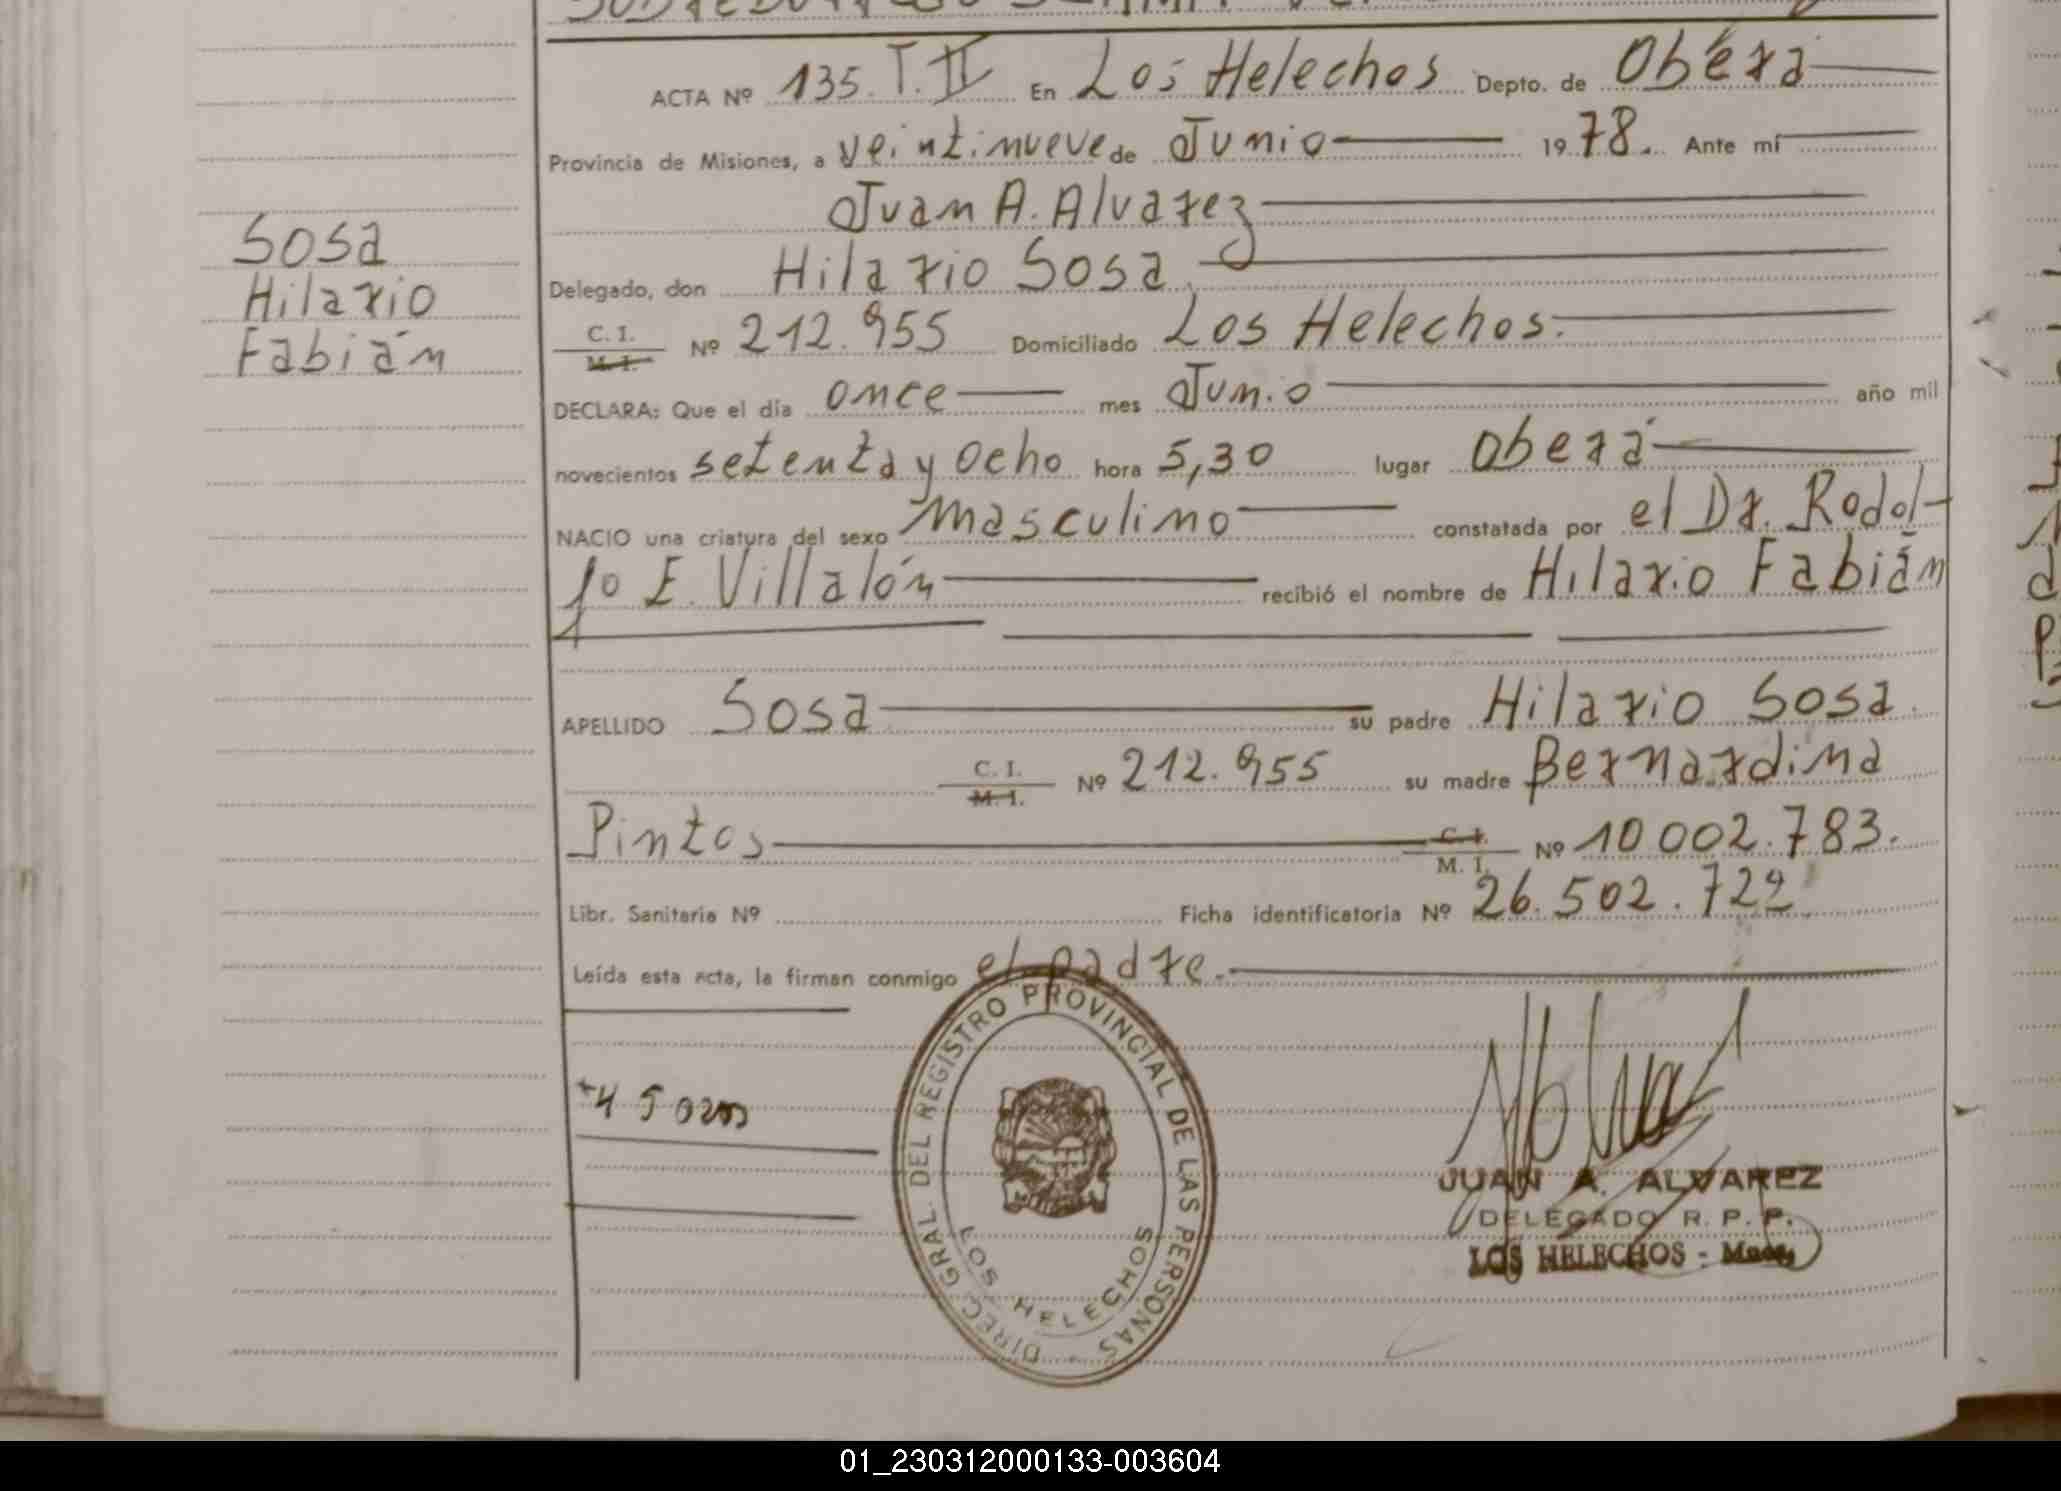 ACTA Nº 135. T. II En Los Helechos Depto. de Oberá
Provincia de Misiones, a veintinueve de Junio 1978. Ante mí
Juan A. Alvarez
Delegado, don Hilario Sosa
C. I. M. I. Nº 212.955 Domiciliado Los Helechos.
DECLARA: Que el día once mes Junio año mil
novecientos setenta y ocho hora 5,30 lugar Oberá
NACIO una criatura del sexo masculino constatada por el Dr. Rodol-
fo E. Villalón recibió el nombre de Hilario Fabián
APELLIDO Sosa su padre Hilario Sosa.
C. I. M. I. Nº 212.955 su madre Bernardina
Pintos C. I. M. I. Nº 10 002.783.
Libr. Sanitaria Nº Ficha identificatoria Nº 26.502.722
Leída esta acta, la firman conmigo el padre.
Sosa
Hilario
Fabián
DIREC. GRAL. DEL REGISTRO PROVINCIAL DE LAS PERSONAS
LOS HELECHOS
JUAN A. ALVAREZ
DELEGADO R. P. P.
LOS HELECHOS - Mnes.
01_230312000133-003604